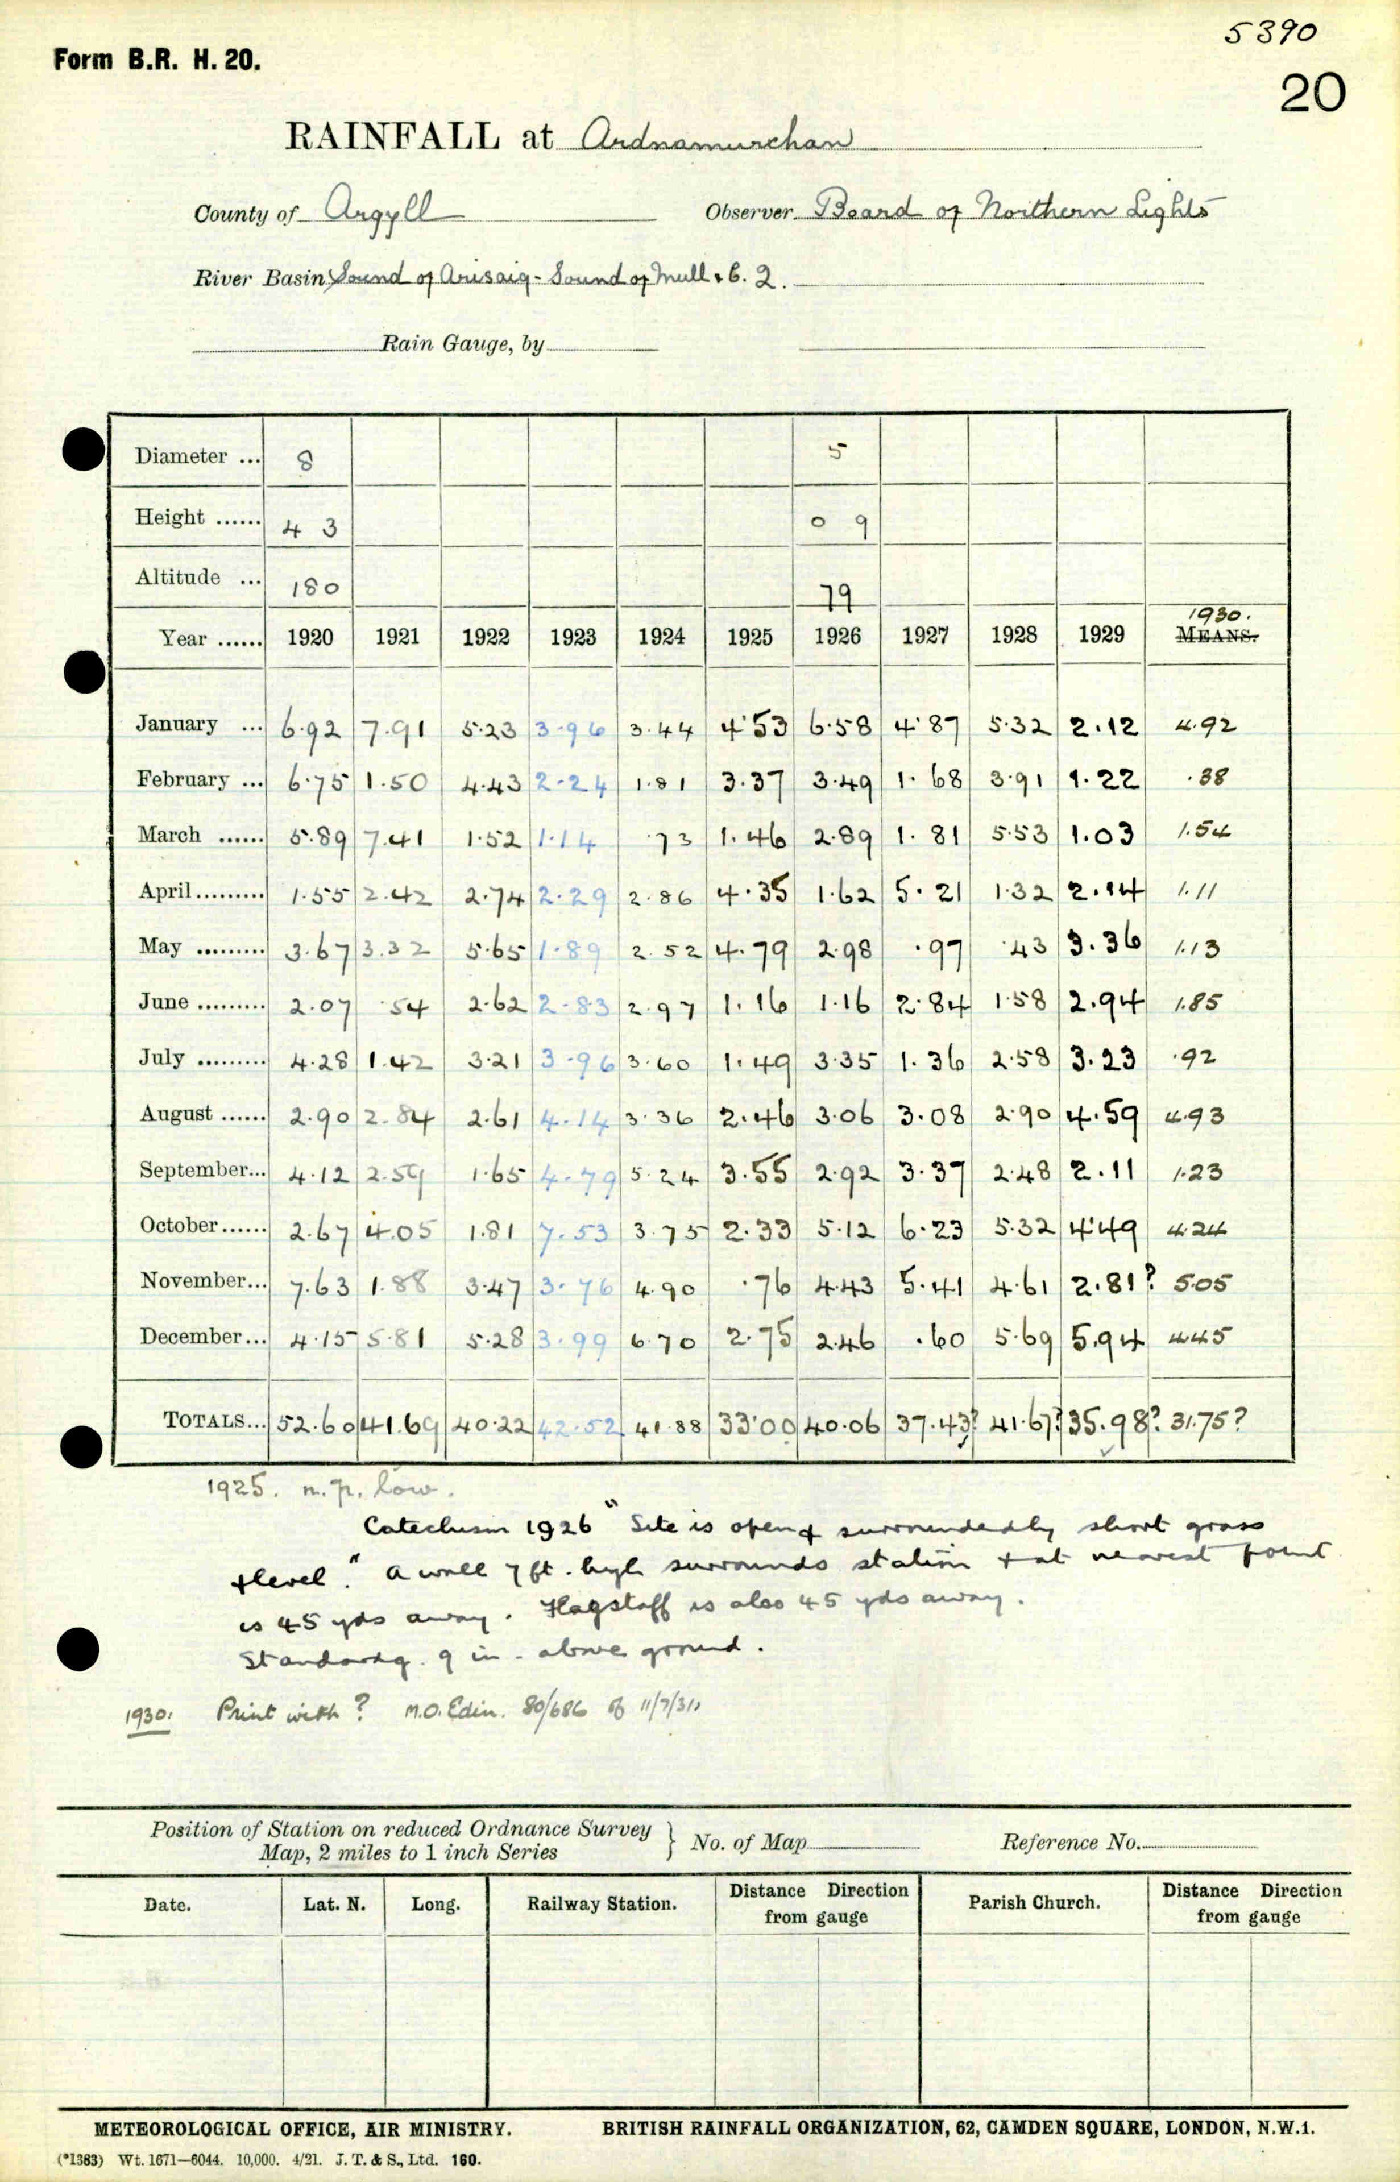 5390
Form B.R. H. 20.
20
RAINFALL at Ardnamurchan
County of Argyll Observer Board of Northern Lights
River Basin Sound of Arisaig - Sound of Mull + C. 2.
Rain Gauge, by
Diameter ... 8 5
Height ...... 4 3 0 9
Altitude ... 180 79
1930.
Year ...... 1920 1921 1922 1923 1924 1925 1926 1927 1928 1929 MEANS.
January ... 6.92 7.91 5.23 3.96 3.44 4.53 6.58 4.87 5.32 2.12 4.92
February ... 6.75 1.50 4.43 2.24 1.81 3.37 3.49 1.68 3.91 1.22 .38
March ...... 5.89 7.41 1.52 1.14 .73 1.46 2.89 1.81 5.53 1.03 1.54
April......... 1.55 2.42 2.74 2.29 2.86 4.35 1.62 5.21 1.32 2.14 1.11
May ......... 3.67 3.32 5.65 1.89 2.52 4.79 2.98 .97 .43 3.36 1.13
June ......... 2.07 .54 2.62 2.83 2.97 1.16 1.16 2.84 1.58 2.94 1.85
July ......... 4.28 1.42 3.21 3.96 3.60 1.49 3.35 1.36 2.58 3.23 .92
August ...... 2.90 2.84 2.61 4.14 3.36 2.46 3.06 3.08 2.90 4.59 4.93
September... 4.12 2.59 1.65 4.79 5.24 3.55 2.92 3.37 2.48 2.11 1.23
October...... 2.67 4.05 1.81 7.53 3.75 2.33 5.12 6.23 5.32 4.49 4.24
November... 7.63 1.88 3.47 3.76 4.90 .76 4.43 5.41 4.61 2.81? 5.05
December... 4.15 5.81 5.28 3.99 6.70 2.75 2.46 .60 5.69 5.94 4.45
TOTALS... 52.60 41.69 40.22 42.52 41.88 33.00 40.06 37.43? 41.67? 35.98? 31.75?
1925. m.p. low.
Catechism 1926 "Site is open & surrounded by short grass
& level." A wall 7 ft. high surrounds station & at nearest point
is 45 yds away. Flagstaff is also 45 yds away.
Standard g. 9 in. above ground.
1930. Print with ? M.O. Edin. 80/686 of 11/7/31
Position of Station on reduced Ordnance Survey
Map, 2 miles to 1 inch Series } No. of Map Reference No.
Date. Lat. N. Long. Railway Station. Distance from gauge Direction Parish Church. Distance from gauge Direction
METEOROLOGICAL OFFICE, AIR MINISTRY. BRITISH RAINFALL ORGANIZATION, 62, CAMDEN SQUARE, LONDON, N.W.1.
(*1383) Wt. 1671—6044. 10,000. 4/21. J. T. & S., Ltd. 160.